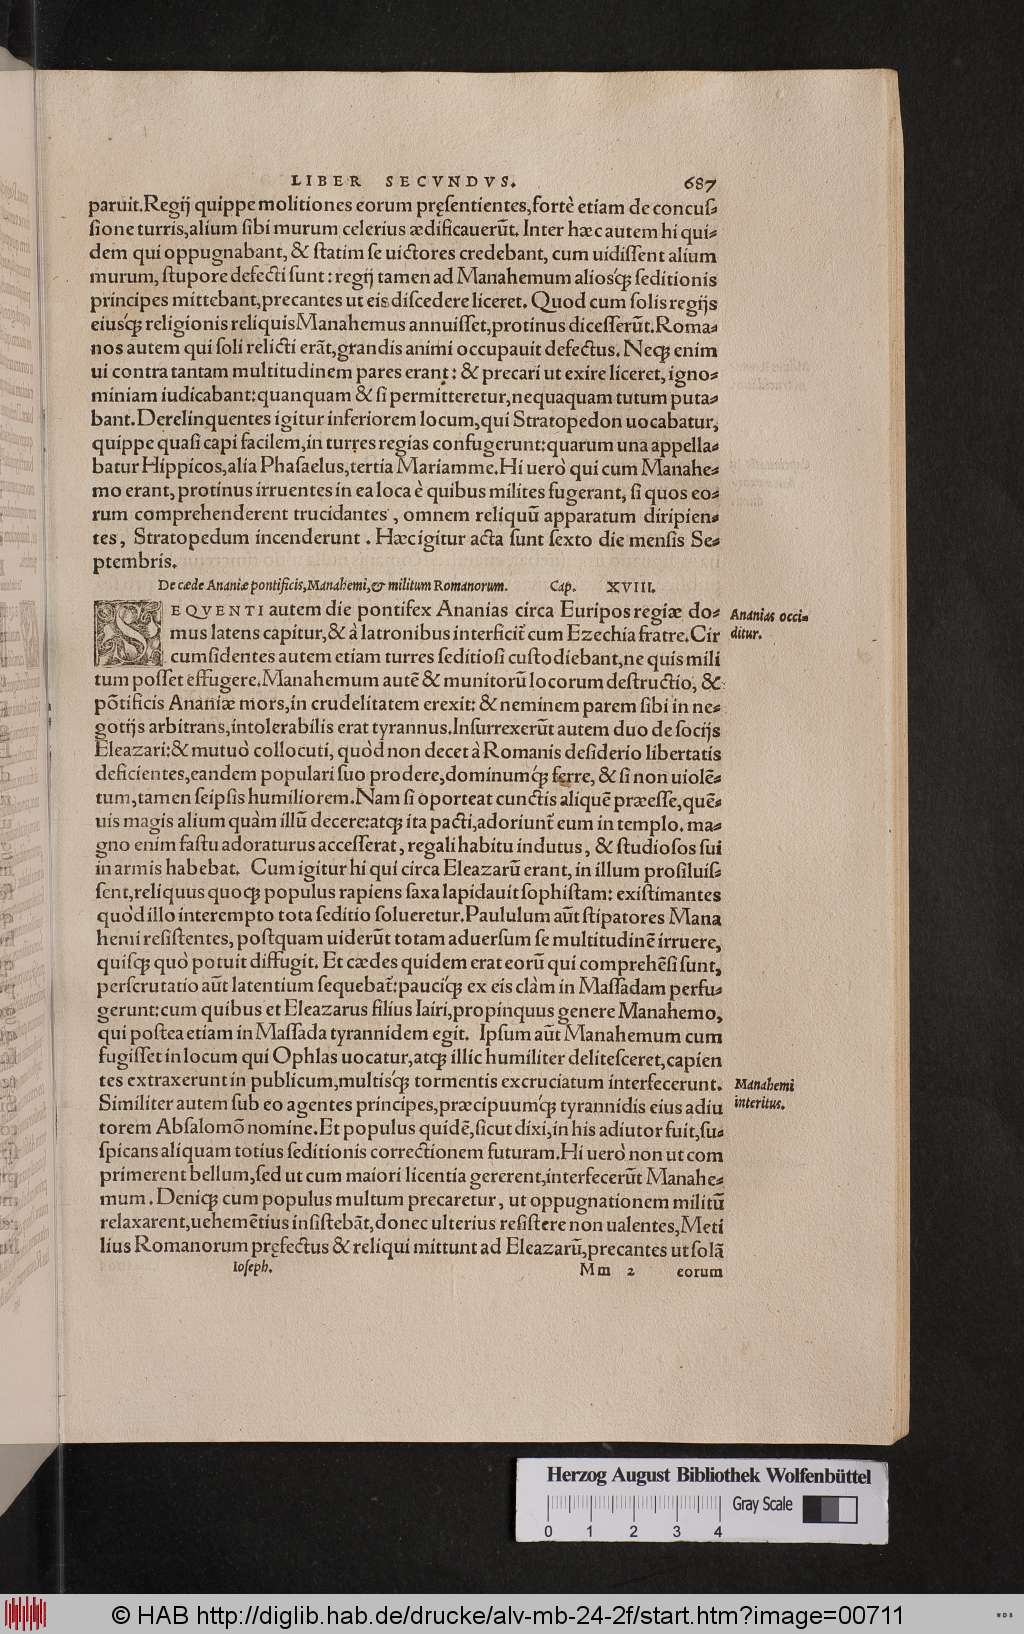 LIBER SECVNDVS. 687
paruit. Regij quippe molitiones eorum pręsentientes, fortè etiam de concus-
sione turris, alium sibi murum celerius ædificauerũt. Inter hæc autem hi qui-
dem qui oppugnabant, & statim se uictores credebant, cum uidissent alium
murum, stupore defecti sunt: regij tamen ad Manahemum aliosq́; seditionis
principes mittebant, precantes ut eis discedere liceret. Quod cum solis regijs
eiusq́; religionis reliquis Manahemus annuisset, protinus dicesserũt. Roma-
nos autem qui soli relicti erãt, grandis animi occupauit defectus. Neq; enim
ui contra tantam multitudinem pares erant: & precari ut exire liceret, igno-
miniam iudicabant: quanquam & si permitteretur, nequaquam tutum puta-
bant. Derelinquentes igitur inferiorem locum, qui Stratopedon uocabatur,
quippe quasi capi facilem, in turres regias confugerunt: quarum una appella-
batur Hippicos, alia Phasaelus, tertia Mariamme. Hi uerò qui cum Manahe-
mo erant, protinus irruentes in ea loca è quibus milites fugerant, si quos eo-
rum comprehenderent trucidantes, omnem reliquũ apparatum diripien-
tes, Stratopedum incenderunt. Hæc igitur acta sunt sexto die mensis Se-
ptembris.
De cæde Ananiæ pontificis, Manahemi, & militum Romanorum. Cap. XVIII.
SEQVENTI autem die pontifex Ananias circa Euripos regiæ do-
mus latens capitur, & à latronibus interficit̃ cum Ezechia fratre. Cir
cumsidentes autem etiam turres seditiosi custodiebant, ne quis mili
tum posset effugere. Manahemum autẽ & munitorũ locorum destructio, &
põtificis Ananiæ mors, in crudelitatem erexit: & neminem parem sibi in ne-
gotijs arbitrans, intolerabilis erat tyrannus. Insurrexerũt autem duo de socijs
Eleazari: & mutuò collocuti, quòd non decet à Romanis desiderio libertatis
deficientes, eandem populari suo prodere, dominumq́; ferre, & si non uiolẽ-
tum, tamen seipsis humiliorem. Nam si oporteat cunctis aliquẽ præesse, quẽ-
uis magis alium quàm illũ decere: atq; ita pacti, adoriunt̃ eum in templo. ma-
gno enim fastu adoraturus accesserat, regali habitu indutus, & studiosos sui
in armis habebat. Cum igitur hi qui circa Eleazarũ erant, in illum prosiluis-
sent, reliquus quoq; populus rapiens saxa lapidauit sophistam: existimantes
quòd illo interempto tota seditio solueretur. Paululum aũt stipatores Mana
hemi resistentes, postquam uiderũt totam aduersum se multitudinẽ irruere,
quisq; quò potuit diffugit. Et cædes quidem erat eorũ qui comprehẽsi sunt,
perscrutatio aũt latentium sequebat̃: pauciq́; ex eis clàm in Massadam perfu-
gerunt: cum quibus et Eleazarus filius Iairi, propinquus genere Manahemo,
qui postea etiam in Massada tyrannidem egit. Ipsum aũt Manahemum cum
fugisset in locum qui Ophlas uocatur, atq; illic humiliter delitesceret, capien
tes extraxerunt in publicum, multisq́; tormentis excruciatum interfecerunt.
Similiter autem sub eo agentes principes, præcipuumq́; tyrannidis eius adiu
torem Absalomõ nomine. Et populus quidẽ, sicut dixi, in his adiutor fuit, su-
spicans aliquam totius seditionis correctionem futuram. Hi uerò non ut com
primerent bellum, sed ut cum maiori licentia gererent, interfecerũt Manahe-
mum. Deniq; cum populus multum precaretur, ut oppugnationem militũ
relaxarent, uehemẽtius insistebãt, donec ulterius resistere non ualentes, Meti
lius Romanorum pręfectus & reliqui mittunt ad Eleazarũ, precantes ut solã
Ioseph. Mm 2 eorum
Ananias occi-
ditur.
Manahemi
interitus.
Herzog August Bibliothek Wolfenbüttel
0 1 2 3 4 Gray Scale
© HAB http://diglib.hab.de/drucke/alv-mb-24-2f/start.htm?image=00711